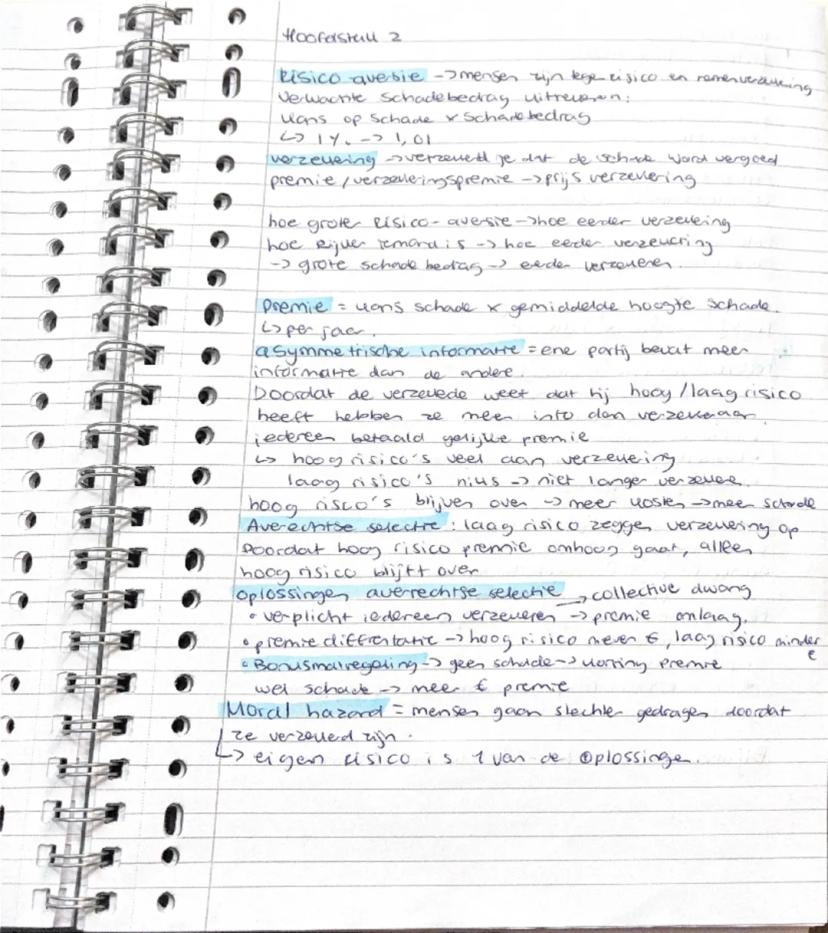 Hoofdstuk 2
Risico aversie -> mensen zijn tegen risico en nemen verzekering
verwachte schadebedrag uitrekenen:
kans op schade x schadebedrag
↳ 1% -> 1,01
verzekering -> verzekerd je dat de schade word vergoed
premie/verzekeringspremie -> prijs verzekering
hoe groter Risico-aversie -> hoe eerder verzekering
hoe rijker iemand is -> hoe eerder verzekering
-> grote schade bedrag -> eerder verzekeren.
Premie = kans schade x gemiddelde hoogte schade.
↳ per jaar.
asymmetrische informatie = ene partij bevat meer
informatie dan de andere.
Doordat de verzekerde weet dat hij hoog/laag risico
heeft hebben ze meer info dan verzekeraar.
iedereen betaald gelijke premie
↳ hoog risico's veel aan verzekering
laag risico's niks -> niet langer verzeker
hoog risco's blijven over -> meer kosten -> meer schade
Averechtse selectie: laag risico zeggen verzekering op
Doordat hoog risico premie omhoog gaat, alleen
hoog risico blijft over
Oplossingen averrechtse selectie -> collectieve dwang
• verplicht iedereen verzekeren -> premie omlaag.
• premiediffrentatie -> hoog risico meer €, laag risico minder €
• Bonusmalregeling -> geen schade -> korting premie
wel schade -> meer € premie
Moral hazard = mensen gaan slechter gedragen doordat
ze verzekerd zijn.
↳ eigen risico is 1 van de Oplossingen.